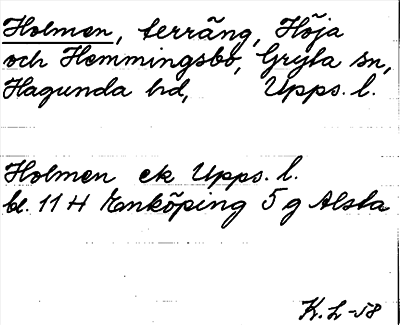 Holmen, terräng, Höja
och Hemmingsbo, Gryta sn,
Hagunda hd, Upps. l.
Holmen ek Upps. l.
bl. 11 H Enköping 5 g Alsta
K. L -58